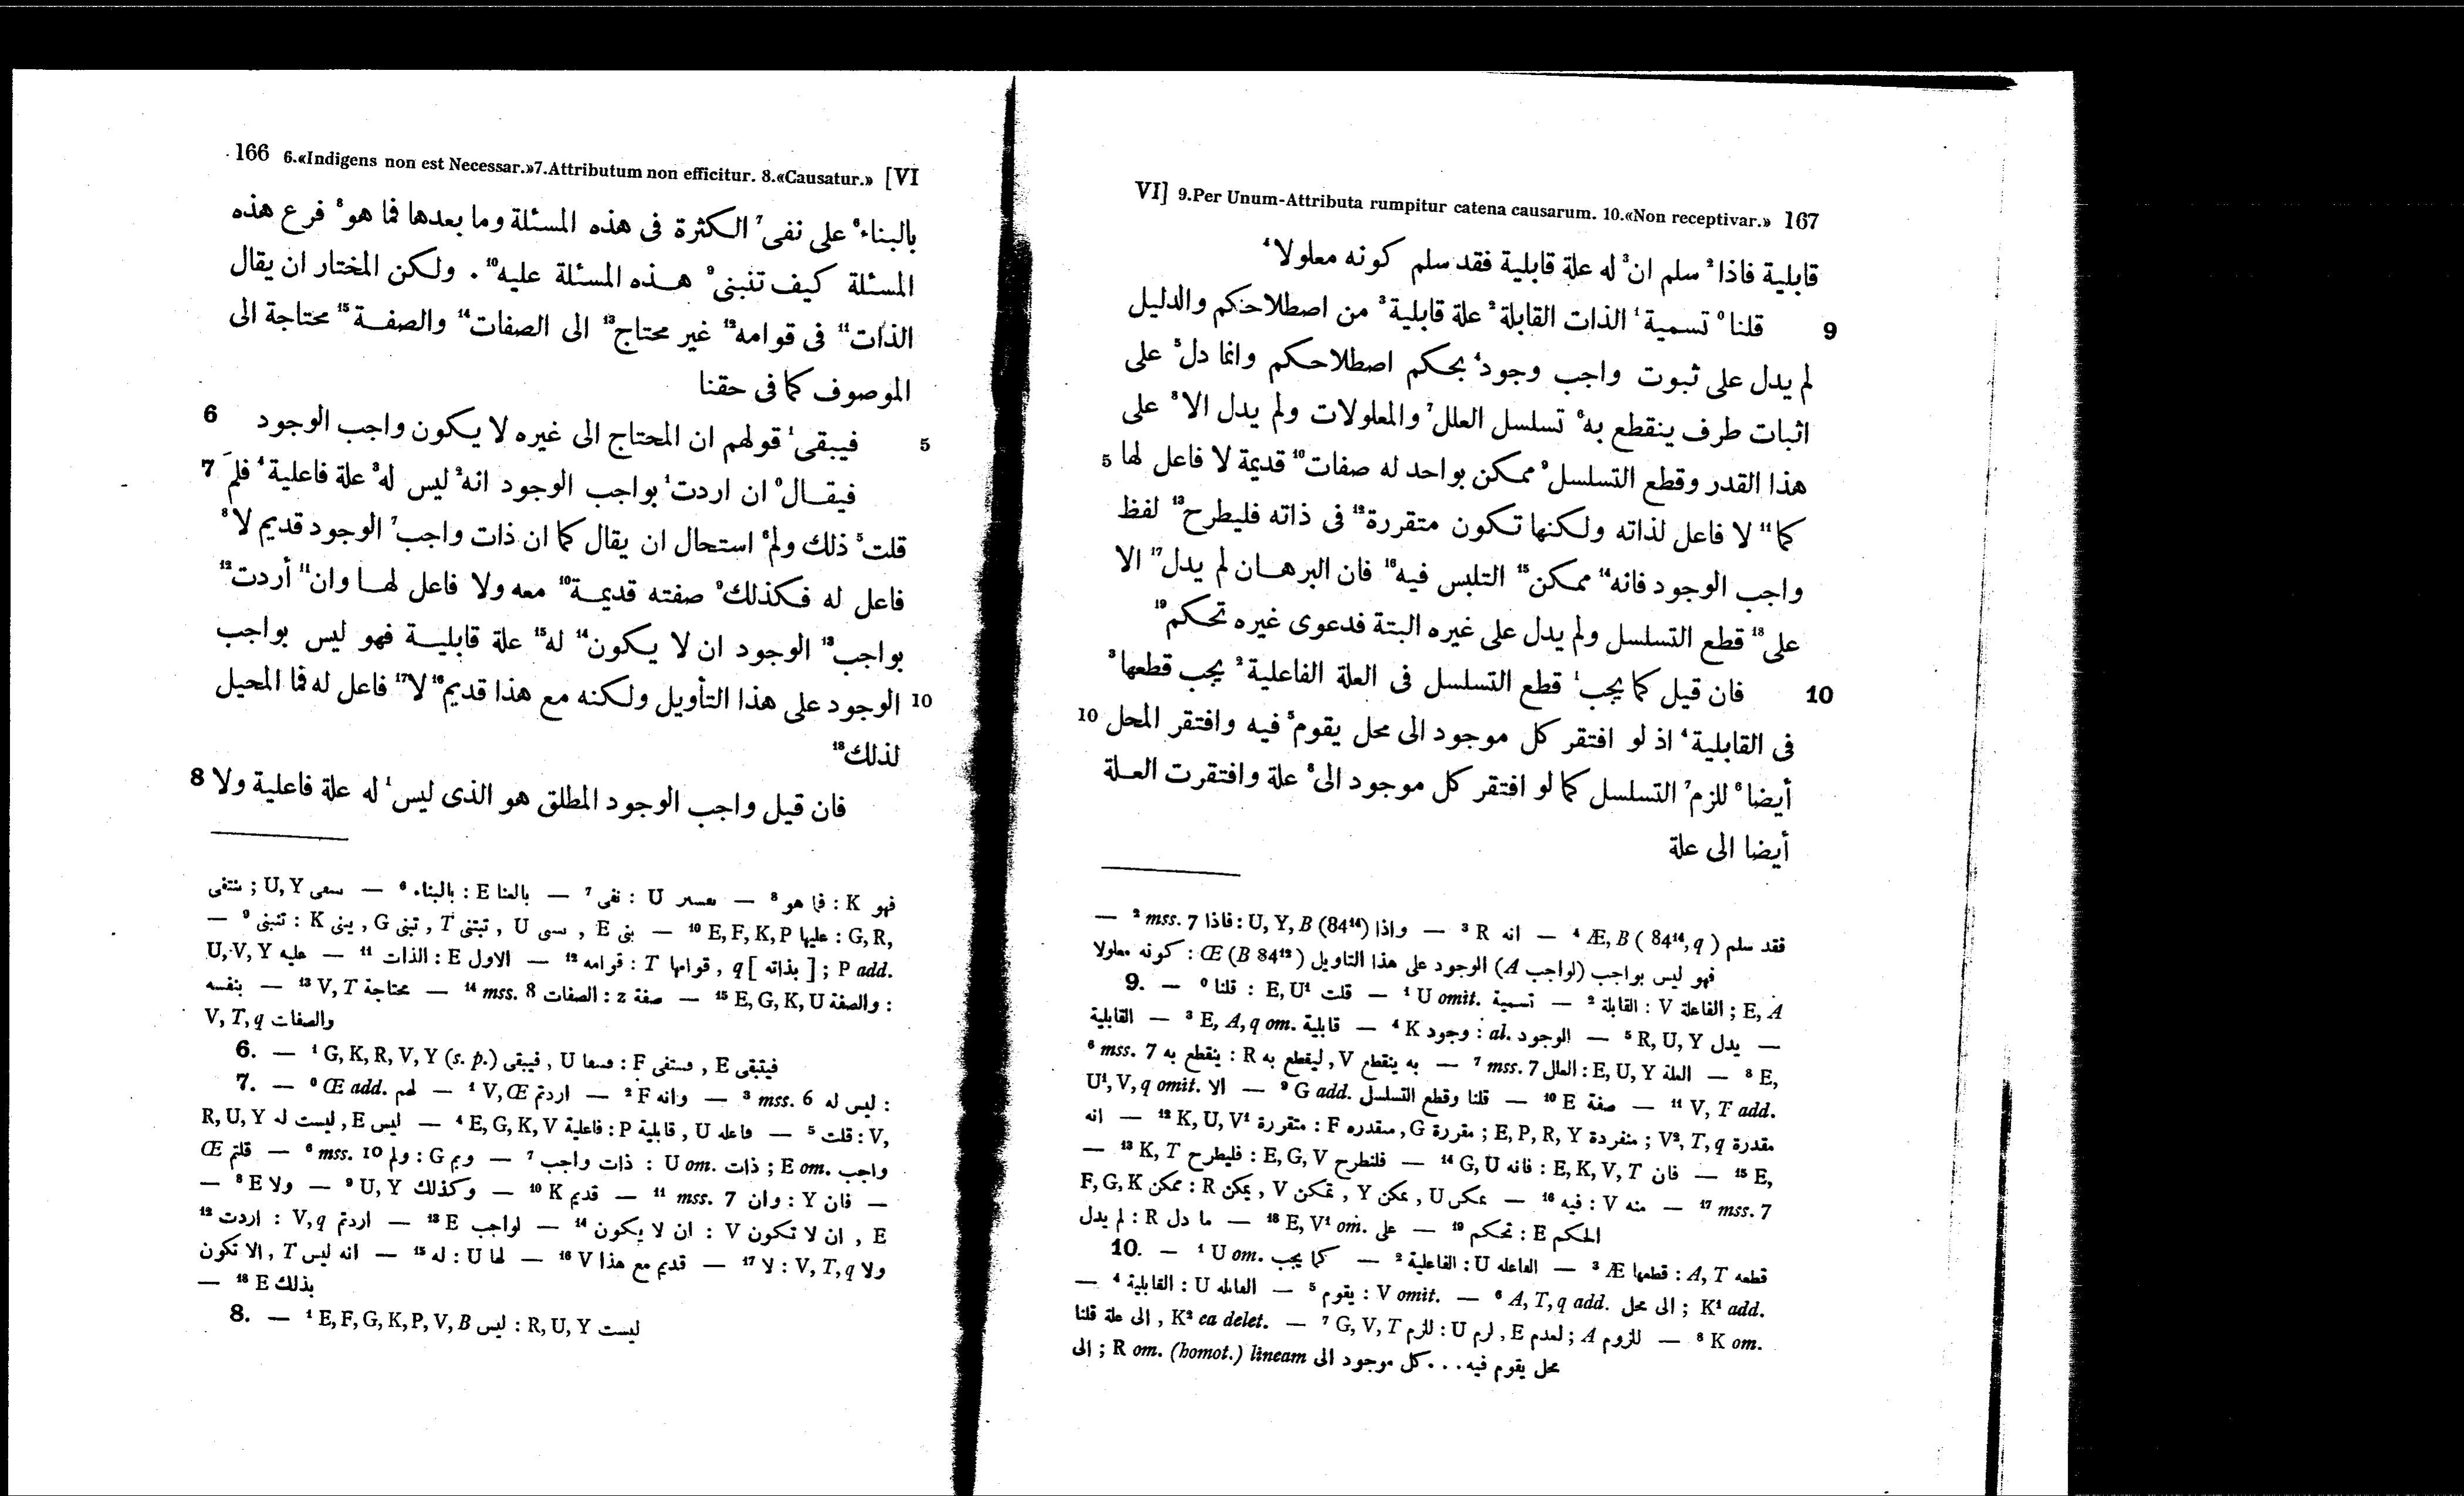 166 6.«Indigens non est Necessar.»7.Attributum non efficitur. 8.«Causatur.» [VI
بالبناء⁶ على نفى⁷ الكثرة فى هذه المسئلة وما بعدها فما هو⁸ فرع هذه
المسئلة كيف تنبنى⁹ هذه المسئلة عليه¹⁰. ولكن المختار ان يقال
الذات¹¹ فى قوامه¹² غير محتاج¹³ الى الصفات¹⁴ والصفة¹⁵ محتاجة الى
الموصوف كما فى حقنا
6 فيبقى¹ قولهم ان المحتاج الى غيره لا يكون واجب الوجود 5
7 فيقال⁰ ان اردت¹ بواجب الوجود انه² ليس له³ علة فاعلية⁴ فلمَ
قلت⁵ ذلك ولم⁶ استحال ان يقال كما ان ذات واجب⁷ الوجود قديم لا⁸
فاعل له فكذلك⁹ صفته قديمة¹⁰ معه ولا فاعل لها وان¹¹ أردت¹²
بواجب¹³ الوجود ان لا يكون¹⁴ له¹⁵ علة قابلية فهو ليس بواجب
10 الوجود على هذا التأويل ولكنه مع هذا قديم¹⁶ لا¹⁷ فاعل له فما المحيل
لذلك¹⁸
8 فان قيل واجب الوجود المطلق هو الذى ليس¹ له علة فاعلية ولا
سعى U, Y ; منتفى — ⁶ بالبناء : E بالعنا — ⁷ نفى : U — ⁸ فما هو : K فهو
— ⁹ تنبنى : K يبنى , G تبنى , T تبتنى , U سى , E بنى — ¹⁰ E, F, K, P عليها : G, R,
U, V, Y عليه — ¹¹ الذات : E الاول — ¹² قوامه : T قوامها , q [بذاته] ; P add.
بنفسه — ¹³ V, T محتاجة — ¹⁴ mss. 8 الصفات : z صفة — ¹⁵ E, G, K, U والصفة :
V, T, q والصفات
6. — ¹ G, K, R, V, Y (s. p.) فيبقى , U فسعا : F فستفى , E فيتبقى
7. — ⁰ Œ add. لهم — ¹ V, Œ اردتم — ² F وانه — ³ mss. 6 ليس له :
R, U, Y ليست له , E ليس — ⁴ E, G, K, V فاعلية : P قابلية , U فاعله — ⁵ قلت : V,
Œ قلتم — ⁶ mss. 10 ولم : G وبم — ⁷ ذات واجب : U om. ذات ; E om. واجب
— ⁸ E ولا — ⁹ U, Y وكذلك — ¹⁰ K قديم — ¹¹ mss. 7 وان : Y فان —
¹² اردت : V, q اردتم — ¹³ E لواجب — ¹⁴ ان لا يكون : V ان لا تكون , E
الا تكون , T انه ليس — ¹⁵ له : U لها — ¹⁶ V قديم مع هذا — ¹⁷ لا : V, T, q ولا
— ¹⁸ E بذلك
8. — ¹ E, F, G, K, P, V, B ليس : R, U, Y ليست
VI] 9.Per Unum-Attributa rumpitur catena causarum. 10.«Non receptivar.» 167
قابلية فاذا² سلم ان³ له علة قابلية فقد سلم كونه معلولا⁴
9 قلنا⁰ تسمية¹ الذات القابلة² علة قابلية³ من اصطلاحكم والدليل
لم يدل على ثبوت واجب وجود⁴ بحكم اصطلاحكم وانما دل⁵ على
اثبات طرف ينقطع به⁶ تسلسل العلل⁷ والمعلولات ولم يدل الا⁸ على
5 هذا القدر وقطع التسلسل⁹ ممكن بواحد له صفات¹⁰ قديمة لا فاعل لها
كما¹¹ لا فاعل لذاته ولكنها تكون متقررة¹² فى ذاته فليطرح¹³ لفظ
واجب الوجود فانه¹⁴ ممكن¹⁵ التلبس فيه¹⁶ فان البرهان لم يدل¹⁷ الا
على¹⁸ قطع التسلسل ولم يدل على غيره البتة فدعوى غيره تحكم¹⁹
10 فان قيل كما يجب¹ قطع التسلسل فى العلة الفاعلية² يجب قطعها³
10 فى القابلية⁴ اذ لو افتقر كل موجود الى محل يقوم⁵ فيه وافتقر المحل
أيضا⁶ للزم⁷ التسلسل كما لو افتقر كل موجود الى⁸ علة وافتقرت العلة
أيضا الى علة
— ² mss. 7 فاذا : U, Y, B (84¹⁴) واذا — ³ R انه — ⁴ Æ, B ( 84¹⁴, q ) فقد سلم
كونه معلولا : Œ (B 84¹²) فهو ليس بواجب (A لواجب) الوجود على هذا التاويل
9. — ⁰ قلنا : E, U¹ قلت — ¹ U omit. تسمية — ² القابلة : V الفاعلة ; E, A
القابلية — ³ E, A, q om. قابلية — ⁴ K وجود : al. الوجود — ⁵ R, U, Y يدل —
⁶ mss. 7 ينقطع به : R ليقطع به , V به ينقطع — ⁷ mss. 7 العلل : E, U, Y العلة — ⁸ E,
U¹, V, q omit. الا — ⁹ G add. قلنا وقطع التسلسل — ¹⁰ E صفة — ¹¹ V, T add.
انه — ¹² K, U, V¹ متقررة : F متقدره , G مقررة ; E, P, R, Y منفردة ; V², T, q مقدرة
— ¹³ K, T فليطرح : E, G, V فلنطرح — ¹⁴ G, U فانه : E, K, V, T فان — ¹⁵ E,
F, G, K ممكن : R يمكن , V تمكن , Y عكن , U عكس — ¹⁶ فيه : V منه — ¹⁷ mss. 7
لم يدل : R ما دل — ¹⁸ E, V¹ om. على — ¹⁹ تحكم : E الحكم
10. — ¹ U om. كما يجب — ² الفاعلية : U الفاعله — ³ Æ قطعها : A, T قطعه
— ⁴ القابلية : U القابله — ⁵ يقوم : V omit. — ⁶ A, T, q add. الى محل ; K¹ add.
الى علة قلنا , K² ea delet. — ⁷ G, V, T للزم : U لرم , E لعدم ; A للزوم — ⁸ K om.
الى ; R om. (homot.) lineam محل يقوم فيه . . . كل موجود الى